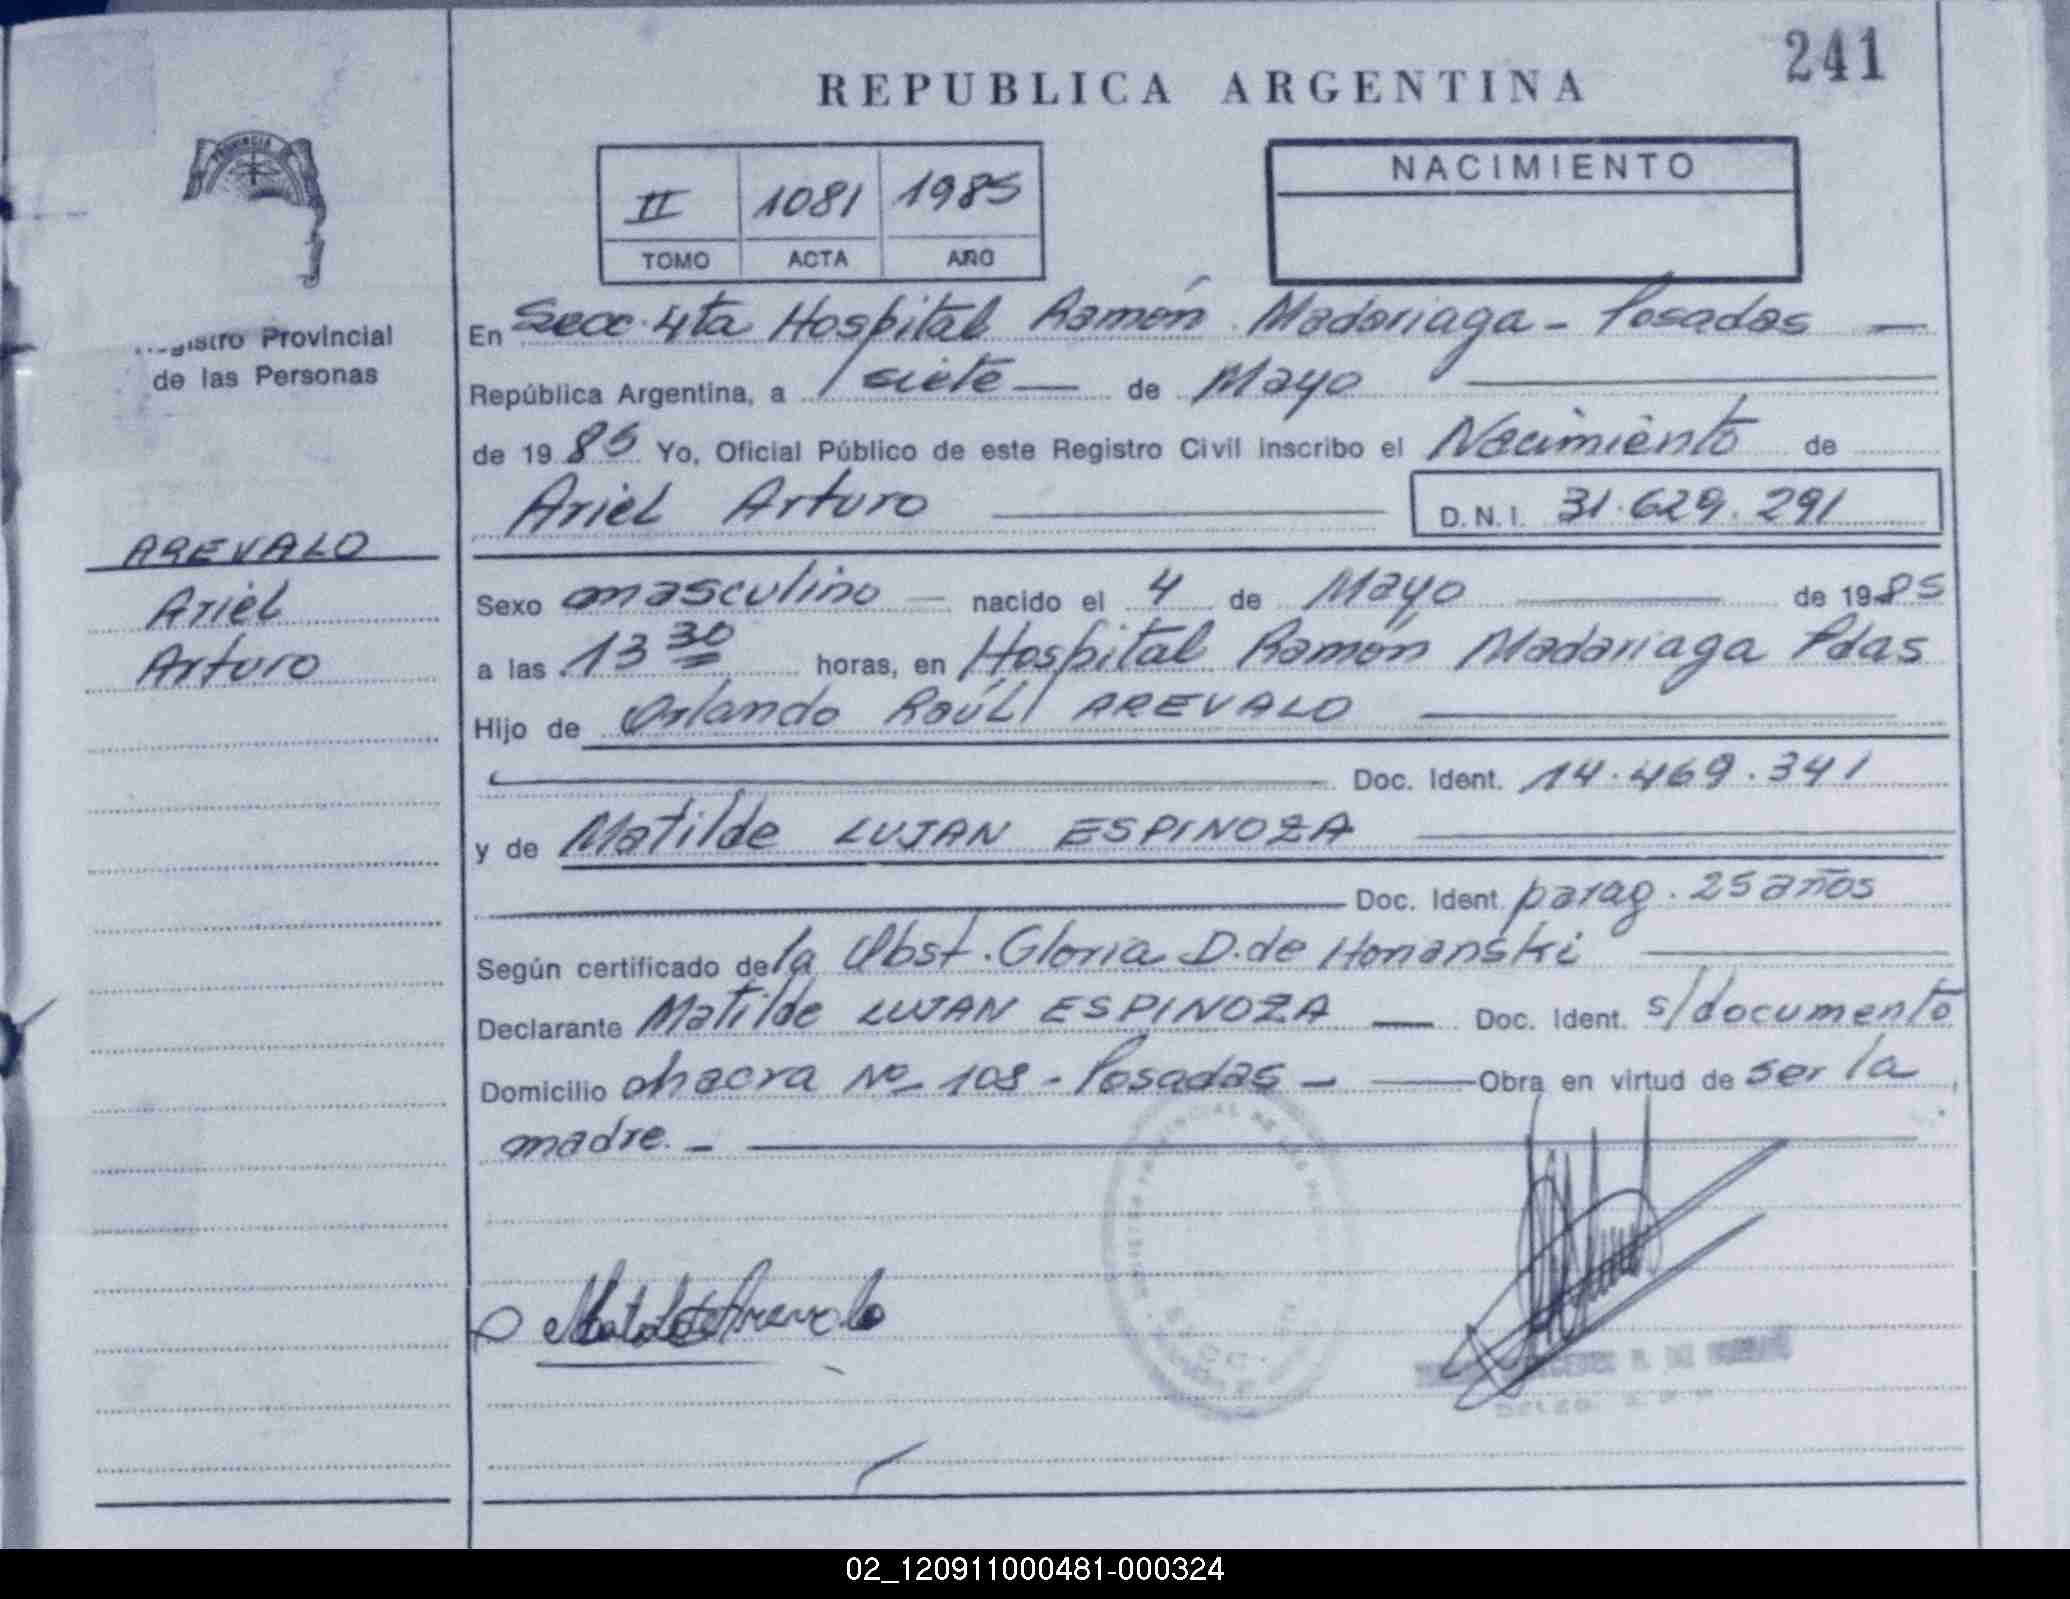 241
REPUBLICA ARGENTINA
PROVINCIA
II 1081 1985
TOMO ACTA AÑO
NACIMIENTO
Registro Provincial
de las Personas
En Secc. 4ta Hospital Ramón Madariaga - Posadas —
República Argentina, a siete — de Mayo
de 1985 Yo, Oficial Público de este Registro Civil inscribo el Nacimiento de
Ariel Arturo D.N.I. 31.629.291
AREVALO
Ariel
Arturo
Sexo masculino — nacido el 4 de Mayo de 1985
a las 13 30 horas, en Hospital Ramón Madariaga Pdas
Hijo de Orlando Raúl AREVALO
Doc. Ident. 14.469.341
y de Matilde LUJAN ESPINOZA
Doc. Ident. parag. 25 años
Según certificado de la Obst. Gloria D. de Honanski
Declarante Matilde LUJAN ESPINOZA — Doc. Ident. s/documento
Domicilio chacra Nº 108 - Posadas - Obra en virtud de ser la
madre. -
02_120911000481-000324